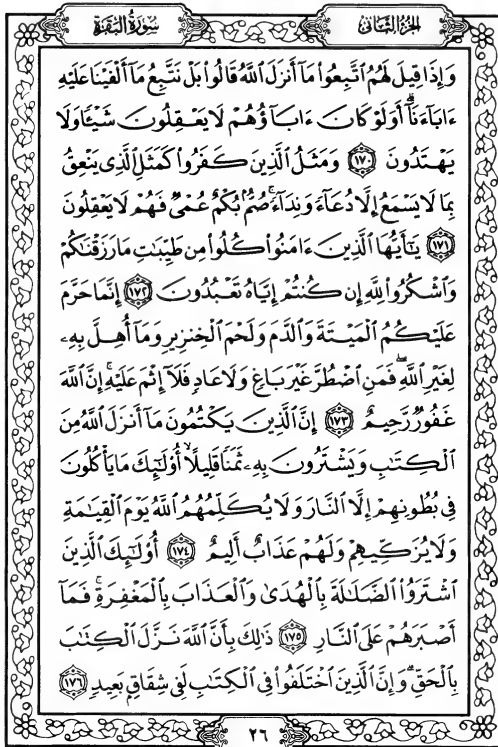 سُورَةُ البَقَرَةِ
الجُزْءُ الثَّانِي
وَإِذَا قِيلَ لَهُمُ ٱتَّبِعُوا۟ مَآ أَنزَلَ ٱللَّهُ قَالُوا۟ بَلْ نَتَّبِعُ مَآ أَلْفَيْنَا عَلَيْهِ
ءَابَآءَنَآ ۗ أَوَلَوْ كَانَ ءَابَآؤُهُمْ لَا يَعْقِلُونَ شَيْـًٔا وَلَا
يَهْتَدُونَ ١٧٠ وَمَثَلُ ٱلَّذِينَ كَفَرُوا۟ كَمَثَلِ ٱلَّذِى يَنْعِقُ
بِمَا لَا يَسْمَعُ إِلَّا دُعَآءً وَنِدَآءً ۚ صُمٌّۢ بُكْمٌ عُمْىٌ فَهُمْ لَا يَعْقِلُونَ
١٧١ يَـٰٓأَيُّهَا ٱلَّذِينَ ءَامَنُوا۟ كُلُوا۟ مِن طَيِّبَـٰتِ مَا رَزَقْنَـٰكُمْ
وَٱشْكُرُوا۟ لِلَّهِ إِن كُنتُمْ إِيَّاهُ تَعْبُدُونَ ١٧٢ إِنَّمَا حَرَّمَ
عَلَيْكُمُ ٱلْمَيْتَةَ وَٱلدَّمَ وَلَحْمَ ٱلْخِنزِيرِ وَمَآ أُهِلَّ بِهِۦ
لِغَيْرِ ٱللَّهِ ۖ فَمَنِ ٱضْطُرَّ غَيْرَ بَاغٍ وَلَا عَادٍ فَلَآ إِثْمَ عَلَيْهِ ۚ إِنَّ ٱللَّهَ
غَفُورٌ رَّحِيمٌ ١٧٣ إِنَّ ٱلَّذِينَ يَكْتُمُونَ مَآ أَنزَلَ ٱللَّهُ مِنَ
ٱلْكِتَـٰبِ وَيَشْتَرُونَ بِهِۦ ثَمَنًا قَلِيلًا ۙ أُو۟لَـٰٓئِكَ مَا يَأْكُلُونَ
فِى بُطُونِهِمْ إِلَّا ٱلنَّارَ وَلَا يُكَلِّمُهُمُ ٱللَّهُ يَوْمَ ٱلْقِيَـٰمَةِ
وَلَا يُزَكِّيهِمْ وَلَهُمْ عَذَابٌ أَلِيمٌ ١٧٤ أُو۟لَـٰٓئِكَ ٱلَّذِينَ
ٱشْتَرَوُا۟ ٱلضَّلَـٰلَةَ بِٱلْهُدَىٰ وَٱلْعَذَابَ بِٱلْمَغْفِرَةِ ۚ فَمَآ
أَصْبَرَهُمْ عَلَى ٱلنَّارِ ١٧٥ ذَٰلِكَ بِأَنَّ ٱللَّهَ نَزَّلَ ٱلْكِتَـٰبَ
بِٱلْحَقِّ ۗ وَإِنَّ ٱلَّذِينَ ٱخْتَلَفُوا۟ فِى ٱلْكِتَـٰبِ لَفِى شِقَاقٍۭ بَعِيدٍ ١٧٦
٢٦